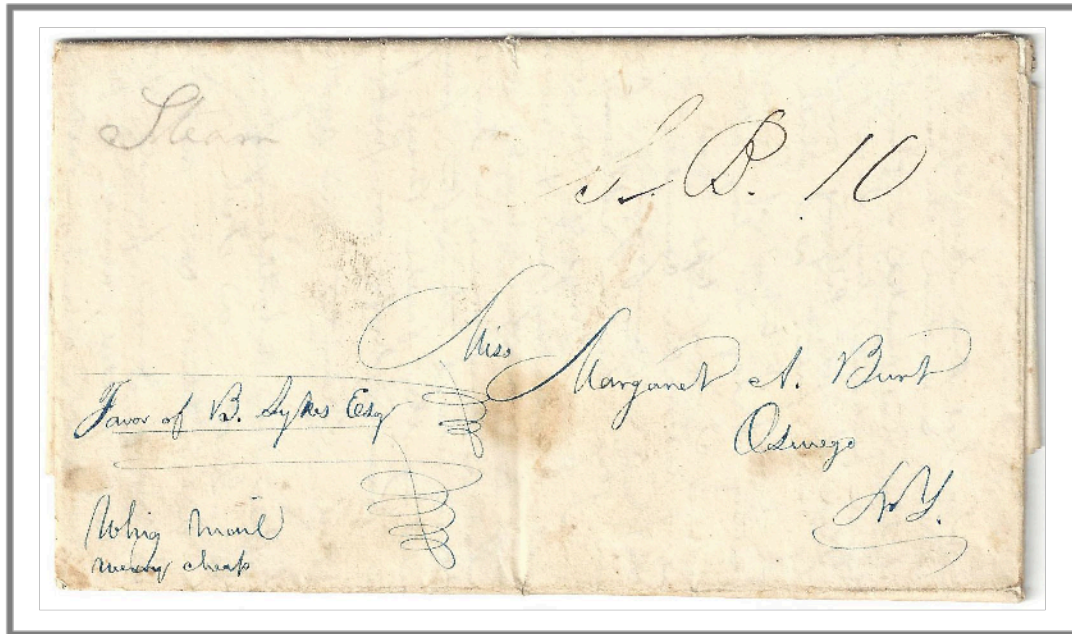 Steam
S. B. 10
Miss Margaret A. Burt
Oswego
N.Y.
Favor of B. Sykes Esq
Whig Mail
cheap